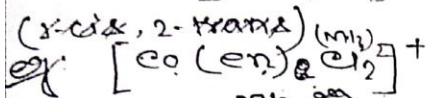 (r-cis, 2-trans) (NH3)
eg. [Co(en)2Cl2]+